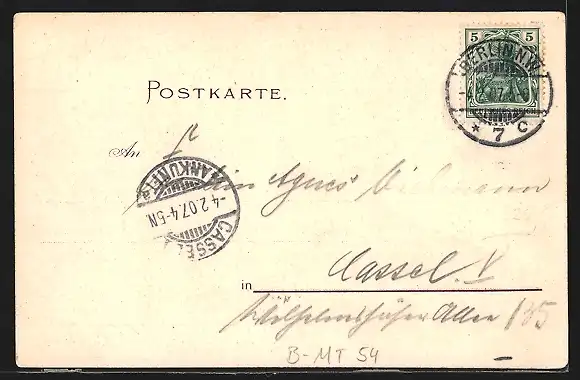 5 5
DEUTSCHES REICH
BERLIN N.W.
* 7 C
POSTKARTE.
An
Agnes
ANKUNFT
-4.2.07.4-5N
CASSEL
Cassel. V
in
Wilhelmshöher Allee 185
B-MT 54